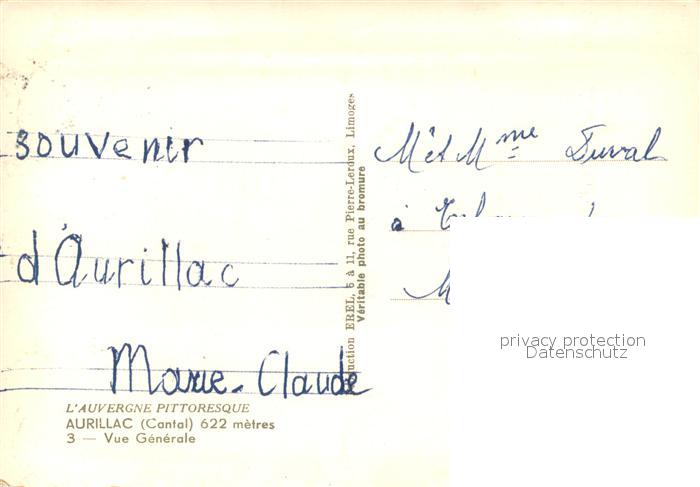 souvenir
d'Aurillac
Marie-Claude
L'AUVERGNE PITTORESQUE
AURILLAC (Cantal) 622 mètres
3 — Vue Générale
EREL, 5 à 11, rue Pierre-Leroux, Limoges
Véritable photo au bromure
M et Mme Duval
à
M
privacy protection
Datenschutz